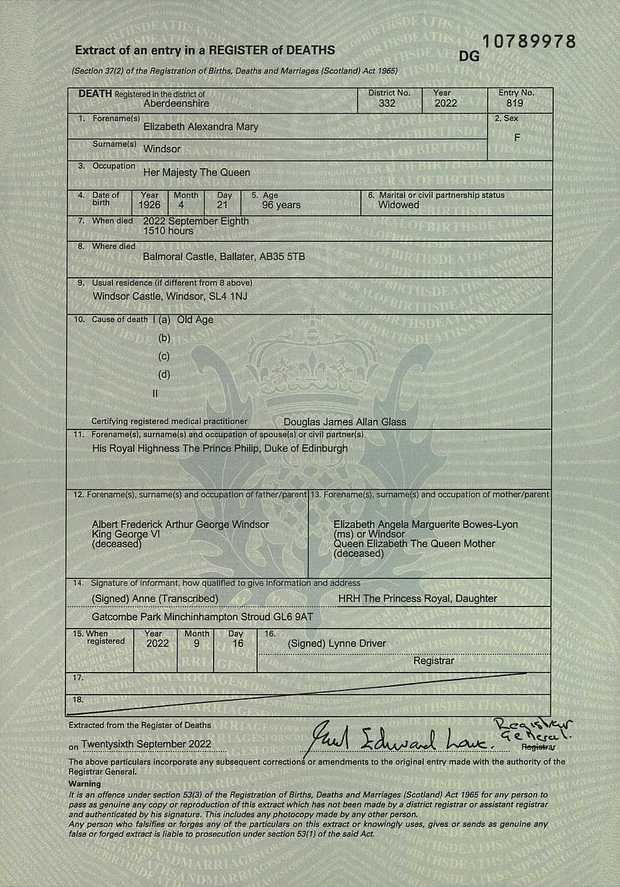 Extract of an entry in a REGISTER of DEATHS
DG 10789978
(Section 37(2) of the Registration of Births, Deaths and Marriages (Scotland) Act 1965)
DEATH Registered in the district of
Aberdeenshire
District No.
332
Year
2022
Entry No.
819
1. Forename(s)
Elizabeth Alexandra Mary
Surname(s)
Windsor
2. Sex
F
3. Occupation
Her Majesty The Queen
4. Date of birth
Year
1926
Month
4
Day
21
5. Age
96 years
6. Marital or civil partnership status
Widowed
7. When died
2022 September Eighth
1510 hours
8. Where died
Balmoral Castle, Ballater, AB35 5TB
9. Usual residence (if different from 8 above)
Windsor Castle, Windsor, SL4 1NJ
10. Cause of death I (a) Old Age
(b)
(c)
(d)
II
Certifying registered medical practitioner Douglas James Allan Glass
11. Forename(s), surname(s) and occupation of spouse(s) or civil partner(s)
His Royal Highness The Prince Philip, Duke of Edinburgh
12. Forename(s), surname(s) and occupation of father/parent
Albert Frederick Arthur George Windsor
King George VI
(deceased)
13. Forename(s), surname(s) and occupation of mother/parent
Elizabeth Angela Marguerite Bowes-Lyon
(ms) or Windsor
Queen Elizabeth The Queen Mother
(deceased)
14. Signature of informant, how qualified to give information and address
(Signed) Anne (Transcribed) HRH The Princess Royal, Daughter
Gatcombe Park Minchinhampton Stroud GL6 9AT
15. When registered
Year
2022
Month
9
Day
16
16.
(Signed) Lynne Driver
Registrar
17.
18.
Extracted from the Register of Deaths
on Twentysixth September 2022
Edward Lowe.
Registrar
General.
Registrar
The above particulars incorporate any subsequent corrections or amendments to the original entry made with the authority of the
Registrar General.
Warning
It is an offence under section 53(3) of the Registration of Births, Deaths and Marriages (Scotland) Act 1965 for any person to
pass as genuine any copy or reproduction of this extract which has not been made by a district registrar or assistant registrar
and authenticated by his signature. This includes any photocopy made by any other person.
Any person who falsifies or forges any of the particulars on this extract or knowingly uses, gives or sends as genuine any
false or forged extract is liable to prosecution under section 53(1) of the said Act.